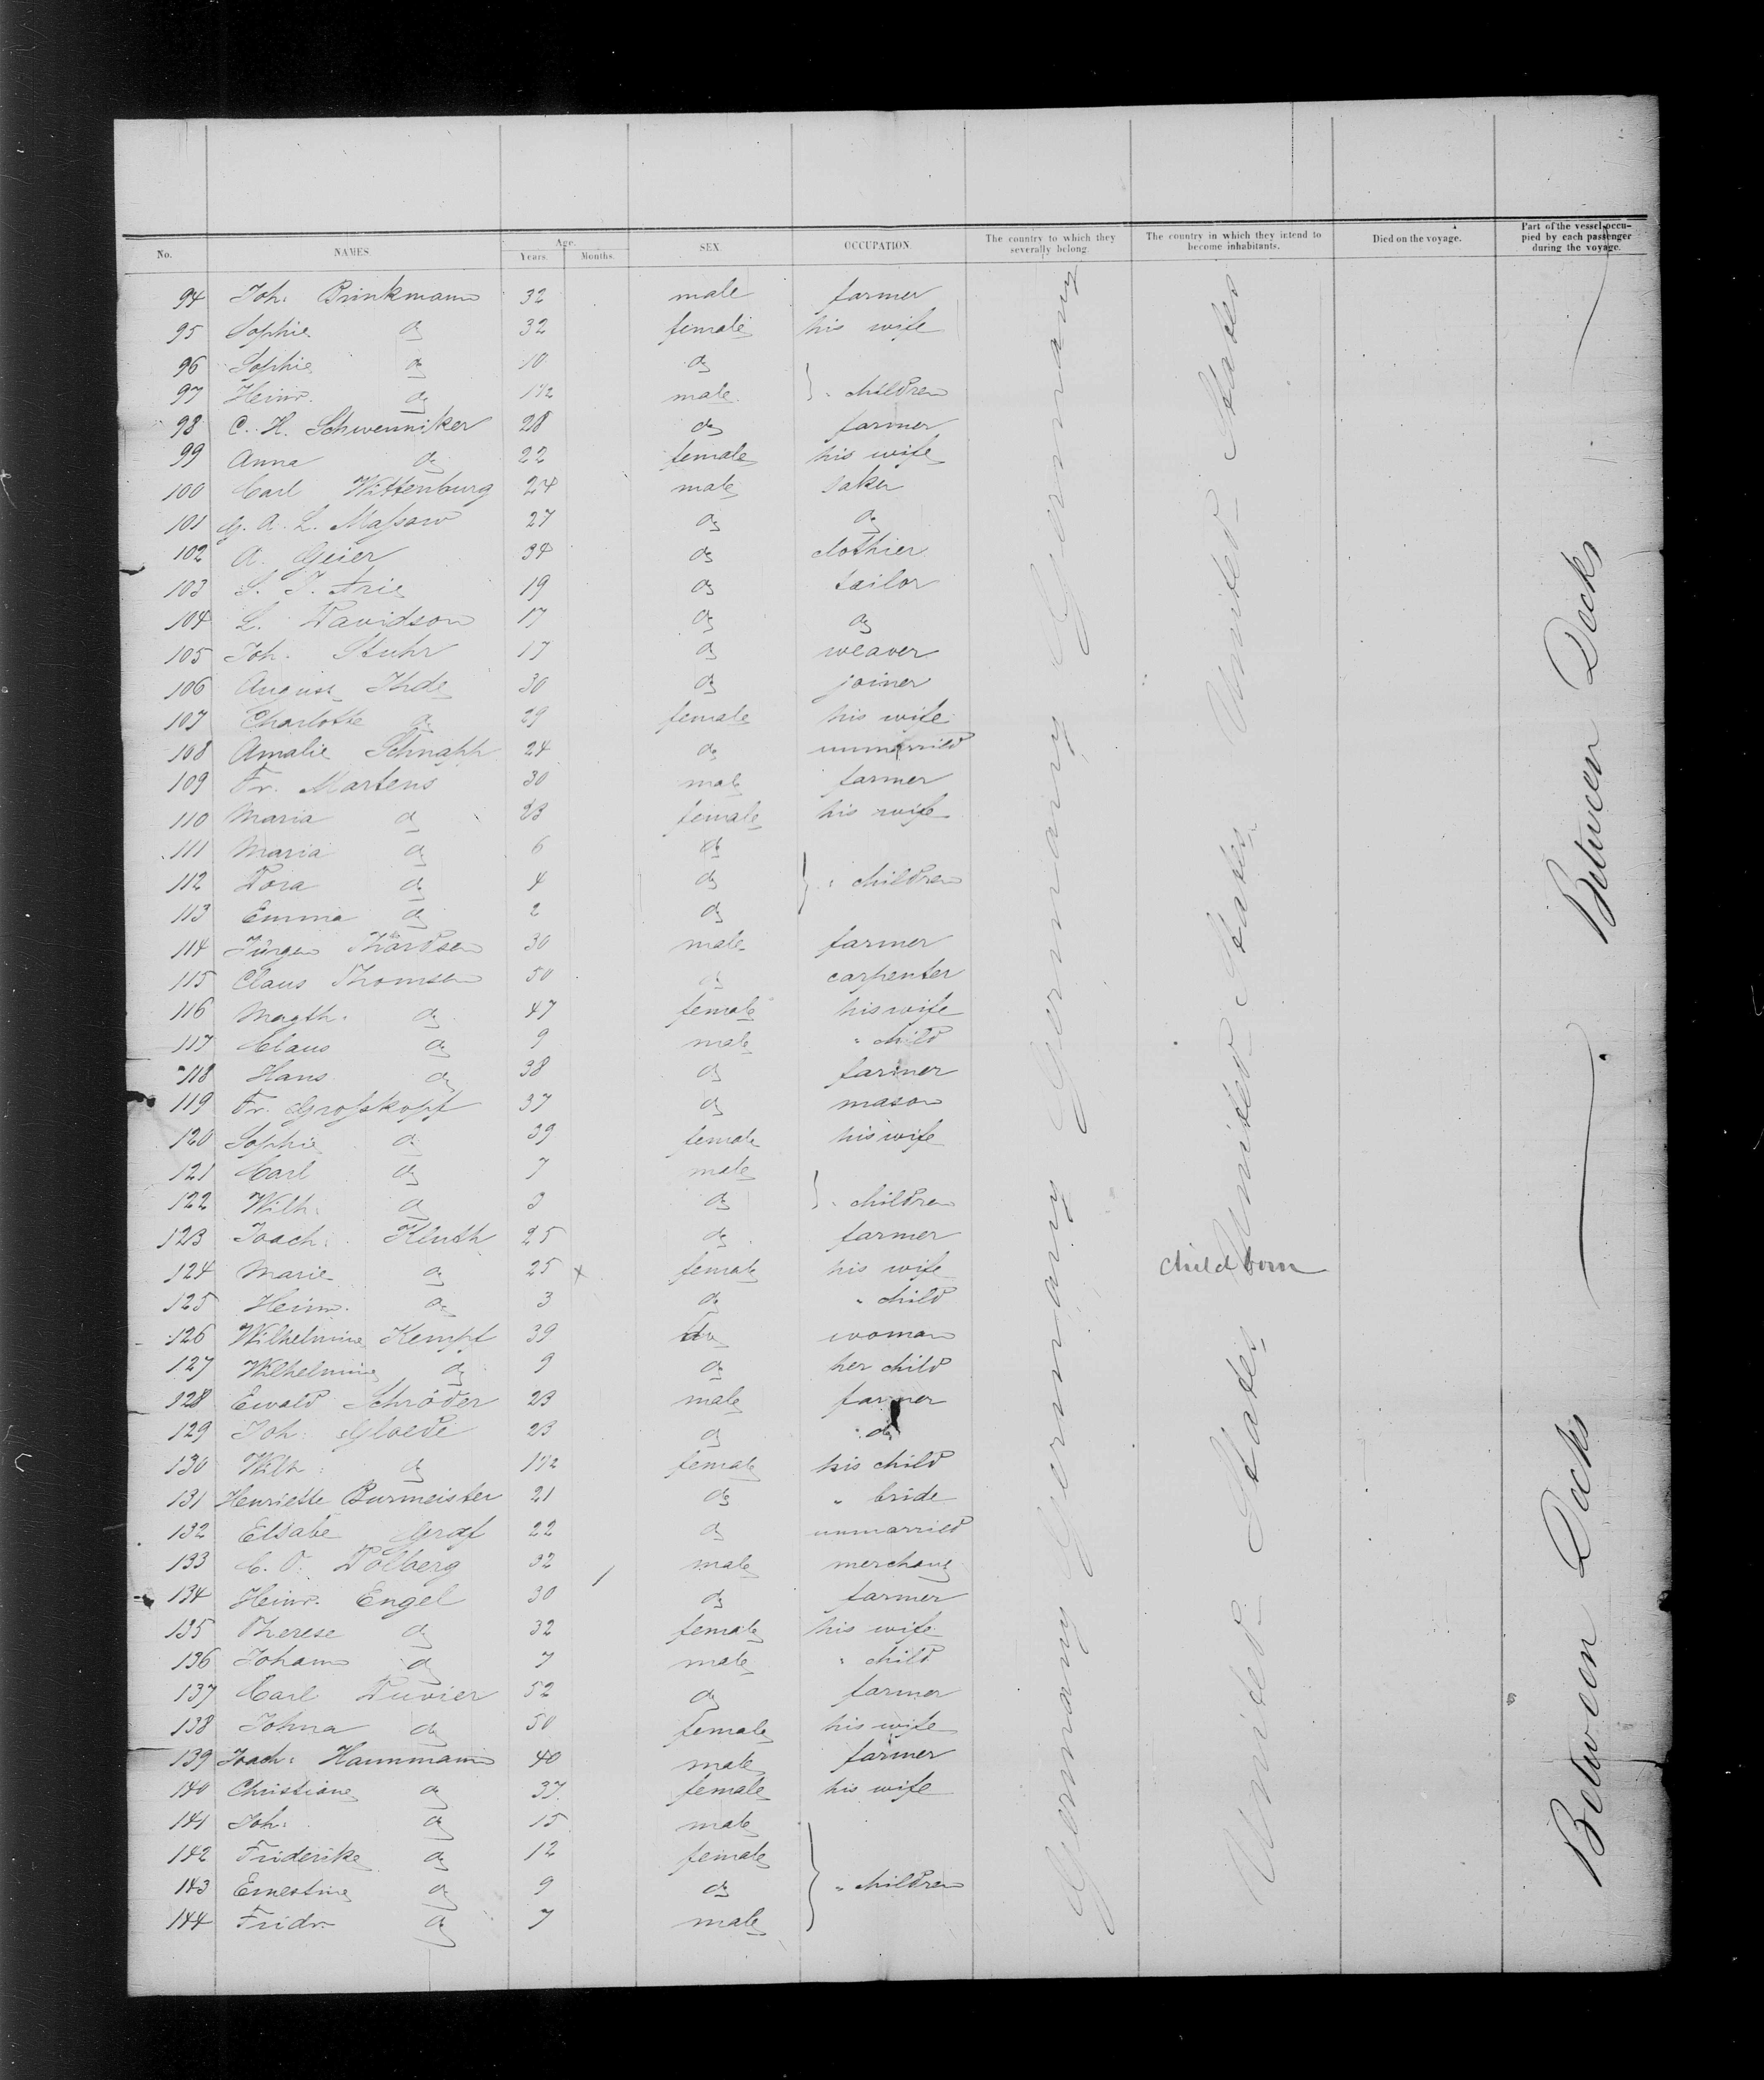 No. NAMES. Age. Years. Months. SEX. OCCUPATION. The country to which they severally belong. The country in which they intend to become inhabitants. Died on the voyage. Part of the vessel occupied by each passenger during the voyage.
94 Joh. Brinkmann 32 male farmer
95 Sophie do 32 female his wife
96 Sophie do 10 do
97 Heinr. do 1 1/2 male } " children
98 C. H. Schwenniker 28 do farmer
99 Anna do 22 female his wife
100 Carl Wittenburg 24 male baker
101 G. A. L. Maßow 27 do do
102 A. Geier 34 do clothier
103 S. J. Arie 19 do tailor
104 L. Davidson 17 do do
105 Joh. Stuhr 17 do weaver
106 August Thde 30 do joiner
107 Charlotte do 29 female his wife
108 Amalie Schnapp 24 do unmarried
109 Fr. Martens 30 male farmer
110 Maria do 28 female his wife
111 Maria do 6 do
112 Dora do 4 do } " children
113 Emma do 2 do
114 Jürgen 30 male farmer
115 Claus Thomsen 50 do carpenter
116 Magth. do 47 female his wife
117 Claus do 9 male " child
118 Hans do 38 do farmer
119 Fr. Großkopf 37 do mason
120 Sophie do 39 female his wife
121 Carl do 7 male
122 Wilh. do 3 do } " children
123 Joach. Kluth 25 do farmer
124 Marie do 25 x female his wife child born
125 Heinr. do 3 do " child
126 Wilhelmine Kempf 39 do woman
127 Wilhelmine do 9 do her child
128 Ewald Schröder 23 male farmer
129 Joh. Gloede 23 do do
130 Wilh. do 1 1/2 female his child
131 Henriette Burmeister 21 do " bride
132 Elsabe Graf 22 do unmarried
133 C. O. Dolberg 32 male merchant
134 Heinr. Engel 30 do farmer
135 Therese do 32 female his wife
136 Johann do 7 male " child
137 Carl Duvier 52 do farmer
138 Johna do 50 female his wife
139 Joach. Hannmann 40 male farmer
140 Christiane do 37 female his wife
141 Joh. do 15 male
142 Friderike do 12 female
143 Ernestine do 9 do } " children
144 Fridr. do 7 male
Germany Germany Germany Germany Germany
United States United States United States
Between Decks Between Decks